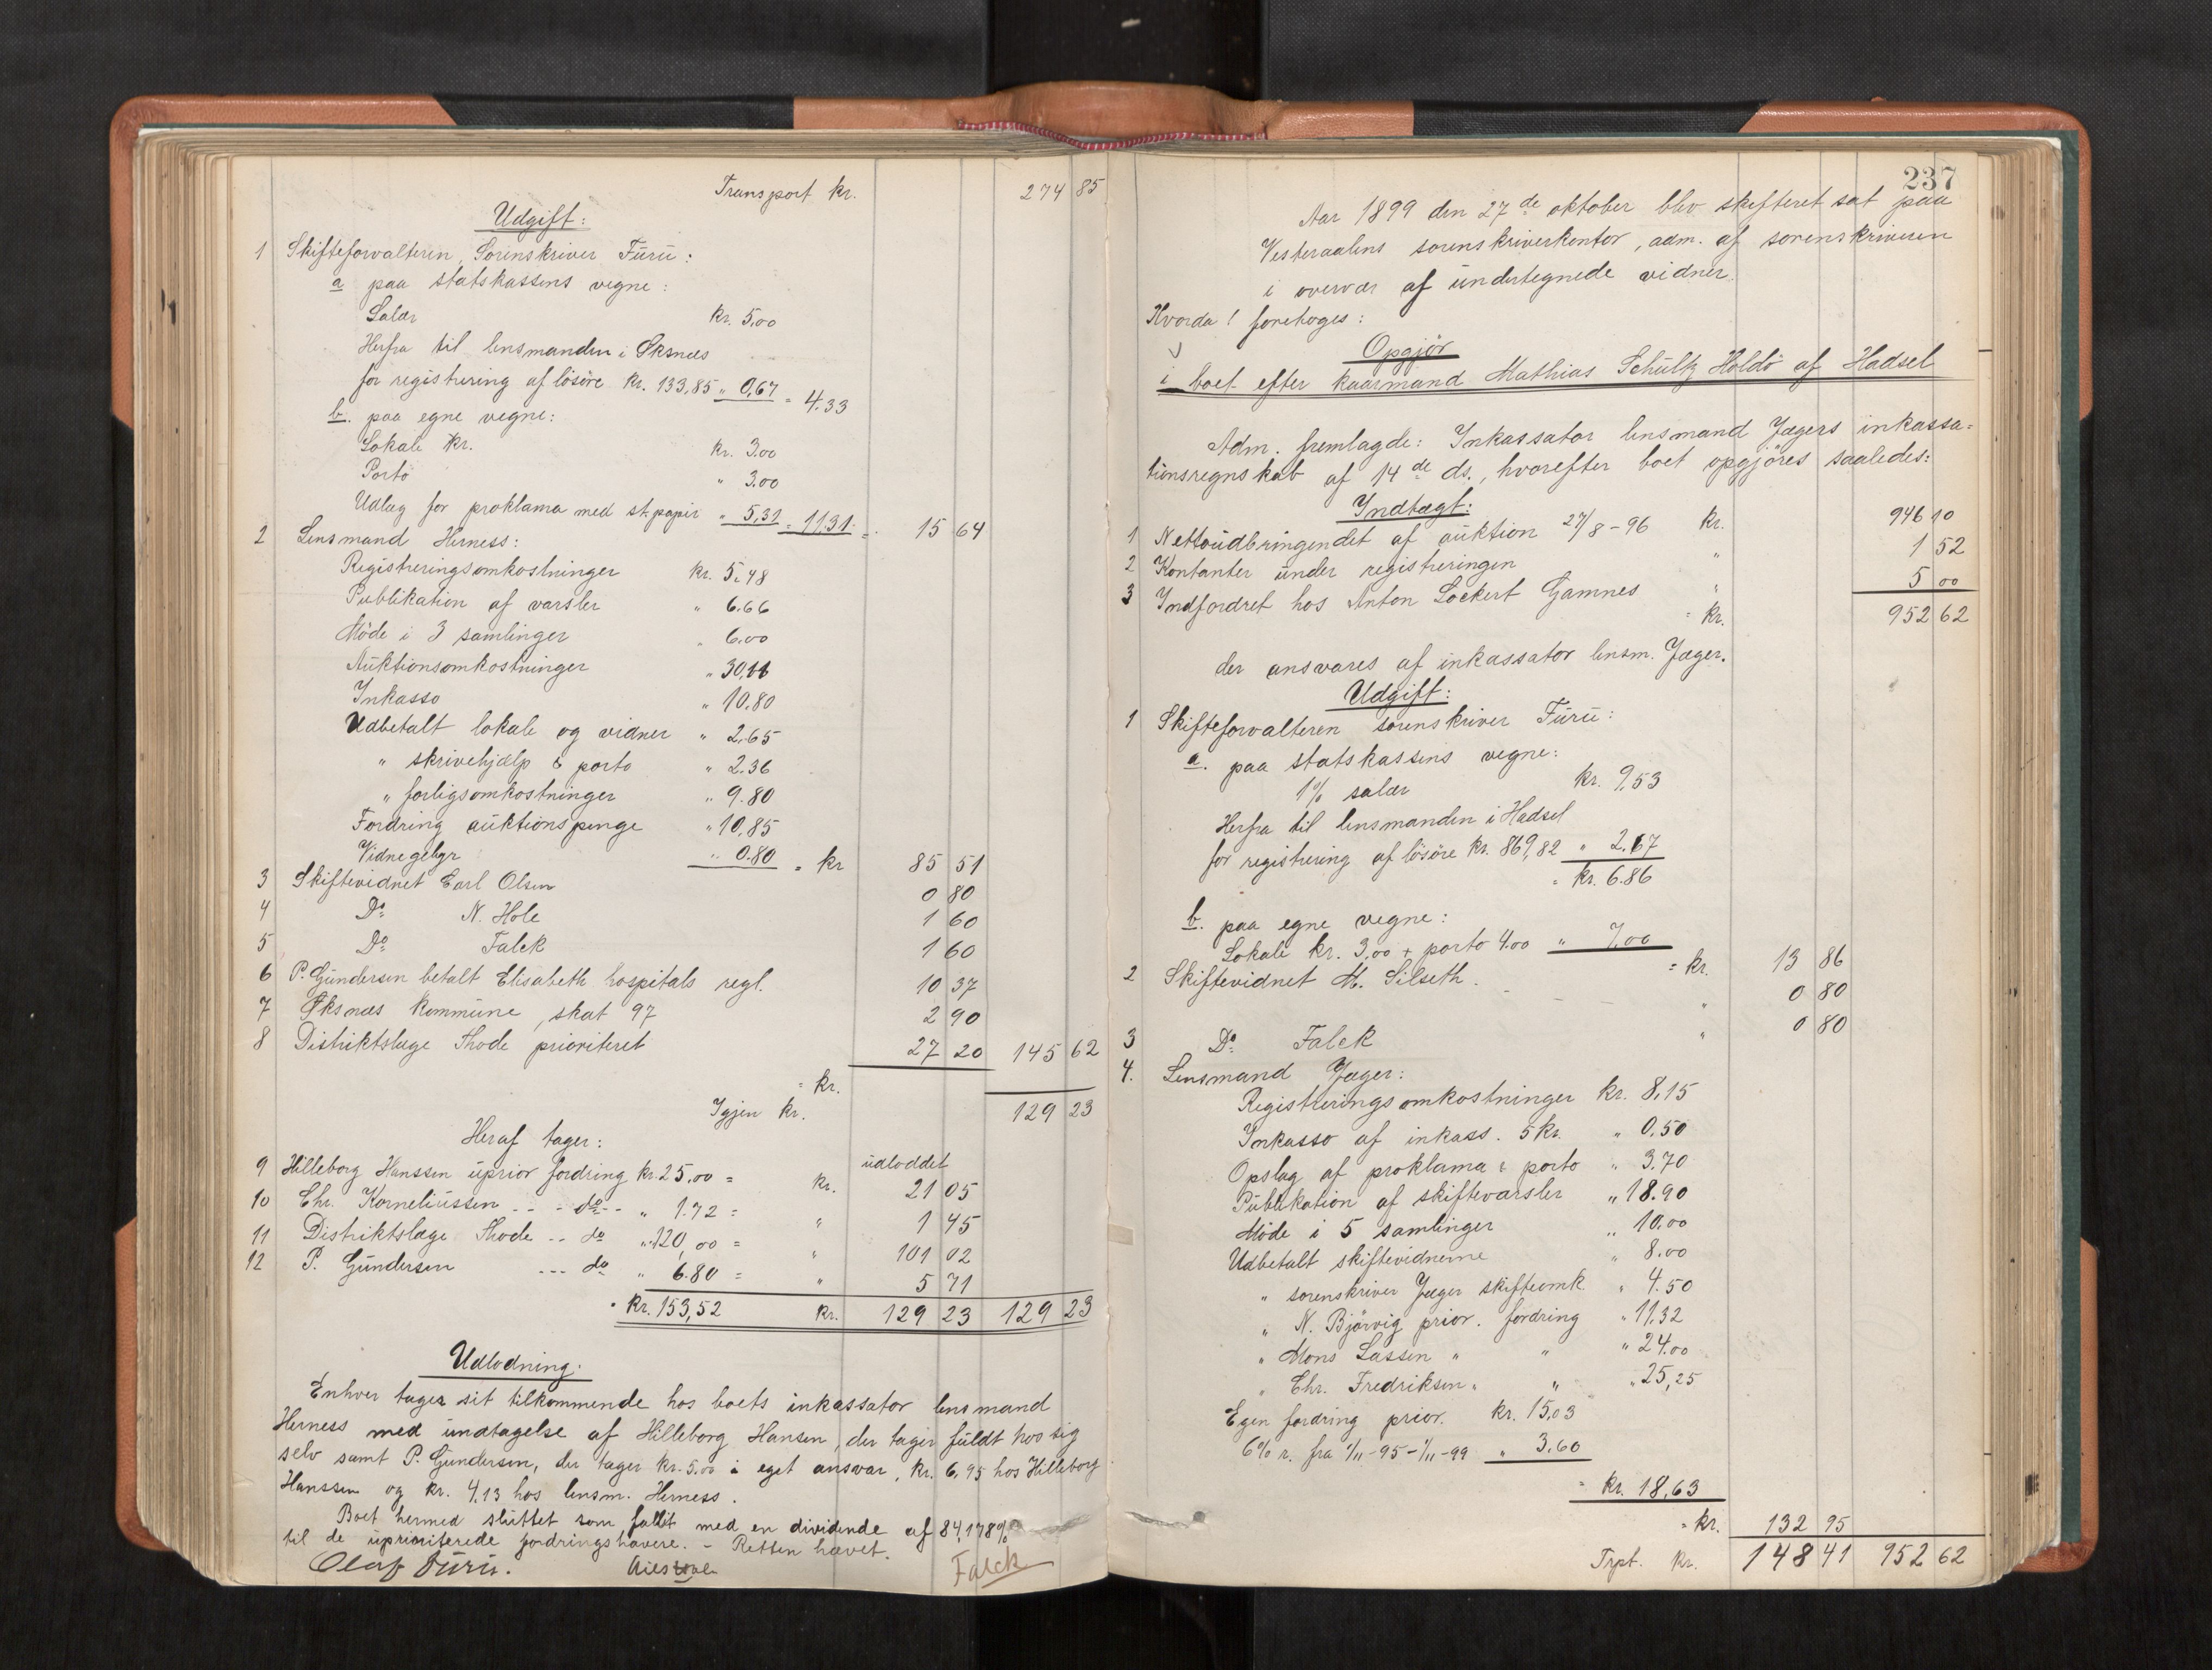 Transport kr. 274 85
Udgift:
1 Skifteforvalteren, Sorenskriver Furu:
a paa statskassens vegne:
Salær kr. 5,00
Herfra til lensmanden i Øksnæs
for registrering af lösöre kr. 133,85 " 0,67 = 4.33
b. paa egne vegne:
Lokale kr. kr. 3.00
Porto " 3.00
Udlæg for proklama med st. papir " 5,31 = 11.31 = 15 64
2 Lensmand Herness:
Registreringsomkostninger kr. 5.48
Publikation af varsler " 6.66
Möde i 3 samlinger " 6.00
Auktionsomkostninger " 30,11
Inkasso " 10.80
Udbetalt lokale og vidner " 2.65
" skrivehjælp & porto " 2.36
" forligsomkostninger " 9.80
Fordring auktionspenge " 10,85
Vidnegebyr " 0.80 = kr 85 51
3 Skiftevidnet Carl Olsen 0 80
4 Do N. Hole 1 60
5 Do Falck 1 60
6 P. Gundersen betalt Elisabeth hospitals regl. 10 37
7 Øksnæs kommune, skat 97 2 90
8 Distriktslæge Thode prioriteret 27 20 145 62
= kr.
Igjen kr. 129 23
Heraf tager:
udloddet
9 Hilleborg Hanssen uprior fordring kr. 25,00 = kr. 21 05
10 Chr. Korneliussen - - - do - - " 1.72 = " 1 45
11 Distriktslæge Thode - - do " 120,00 = " 101 02
12 P. Gundersen - - - do " 6.80 = " 5 71
= kr. 153,52 kr. 129 23 129 23
Udlodning.
Enhver tager sit tilkommende hos boets inkassator lensmand
Herness med undtagelse af Hilleborg Hansen, der tager fuldt hos sig
selv samt P. Gundersen, der tager kr. 5.00 i eget ansvar, kr. 6,95 hos Hilleborg
Hanssen og kr. 4.13 hos lensm. Herness.
Boet hermed sluttet som fallit med en dividende af 84,178%
til de uprioriterede fordringshavere. - Retten hævet.
Olaf Furu. Falck
237
Aar 1899 den 27de oktober blev skifteret sat paa
Vesteraalens sorenskriverkontor, adm. af sorenskriveren
i overvær af undertegnede vidner.
Hvorda! foretoges:
Opgjör
i boet efter kaarmand Mathias Schultz Holdö af Hadsel
Adm. fremlagde: Inkassator lensmand Jægers inkassa=
tionsregnskab af 14de ds., hvorefter boet opgjöres saaledes:
Indtægt:
1 Nettoudbringendet af auktion 27/8-96 kr. 946 10
2 Kontanter under registreringen " 1 52
3 Indfordret hos Anton Lockert Gamnes " 5 00
= kr. 952 62
der ansvares af inkassator lensm. Jæger.
Udgift:
1 Skifteforvalteren sorenskriver Furu:
a. paa statskassens vegne:
1% salær kr. 9,53
Herfra til lensmanden i Hadsel
for registrering af lösöre kr. 869,82 " 2.67
= kr. 6.86
b. paa egne vegne:
Lokale kr. 3,00 + porto 4.00 " 7,00
= kr. 13 86
2 Skiftevidnet M. Silseth. - - - " 0 80
3 Do Falck " 0 80
4. Lensmand Jæger:
Registreringsomkostninger kr. 8,15
Inkasso af inkass. 5 kr. " 0.50
Opslag af proklama & porto " 3.70
Publikation af skiftevarsler " 18.90
Möde i 5 samlinger " 10.00
Udbetalt skiftevidnerne " 8.00
" sorenskriver Jæger skifteomk. " 4.50
" N. Björvig prior. fordring " 11,32
" Mons Lassen " " " 24.00
" Chr. Fredriksen " " " 25,25
Egen fordring prior. kr. 15,03
6% r. fra 1/11-95-1/11-99 " 3.60
= kr. 18,63
= kr. 132 95
Trpt. kr. 148 41 952 62